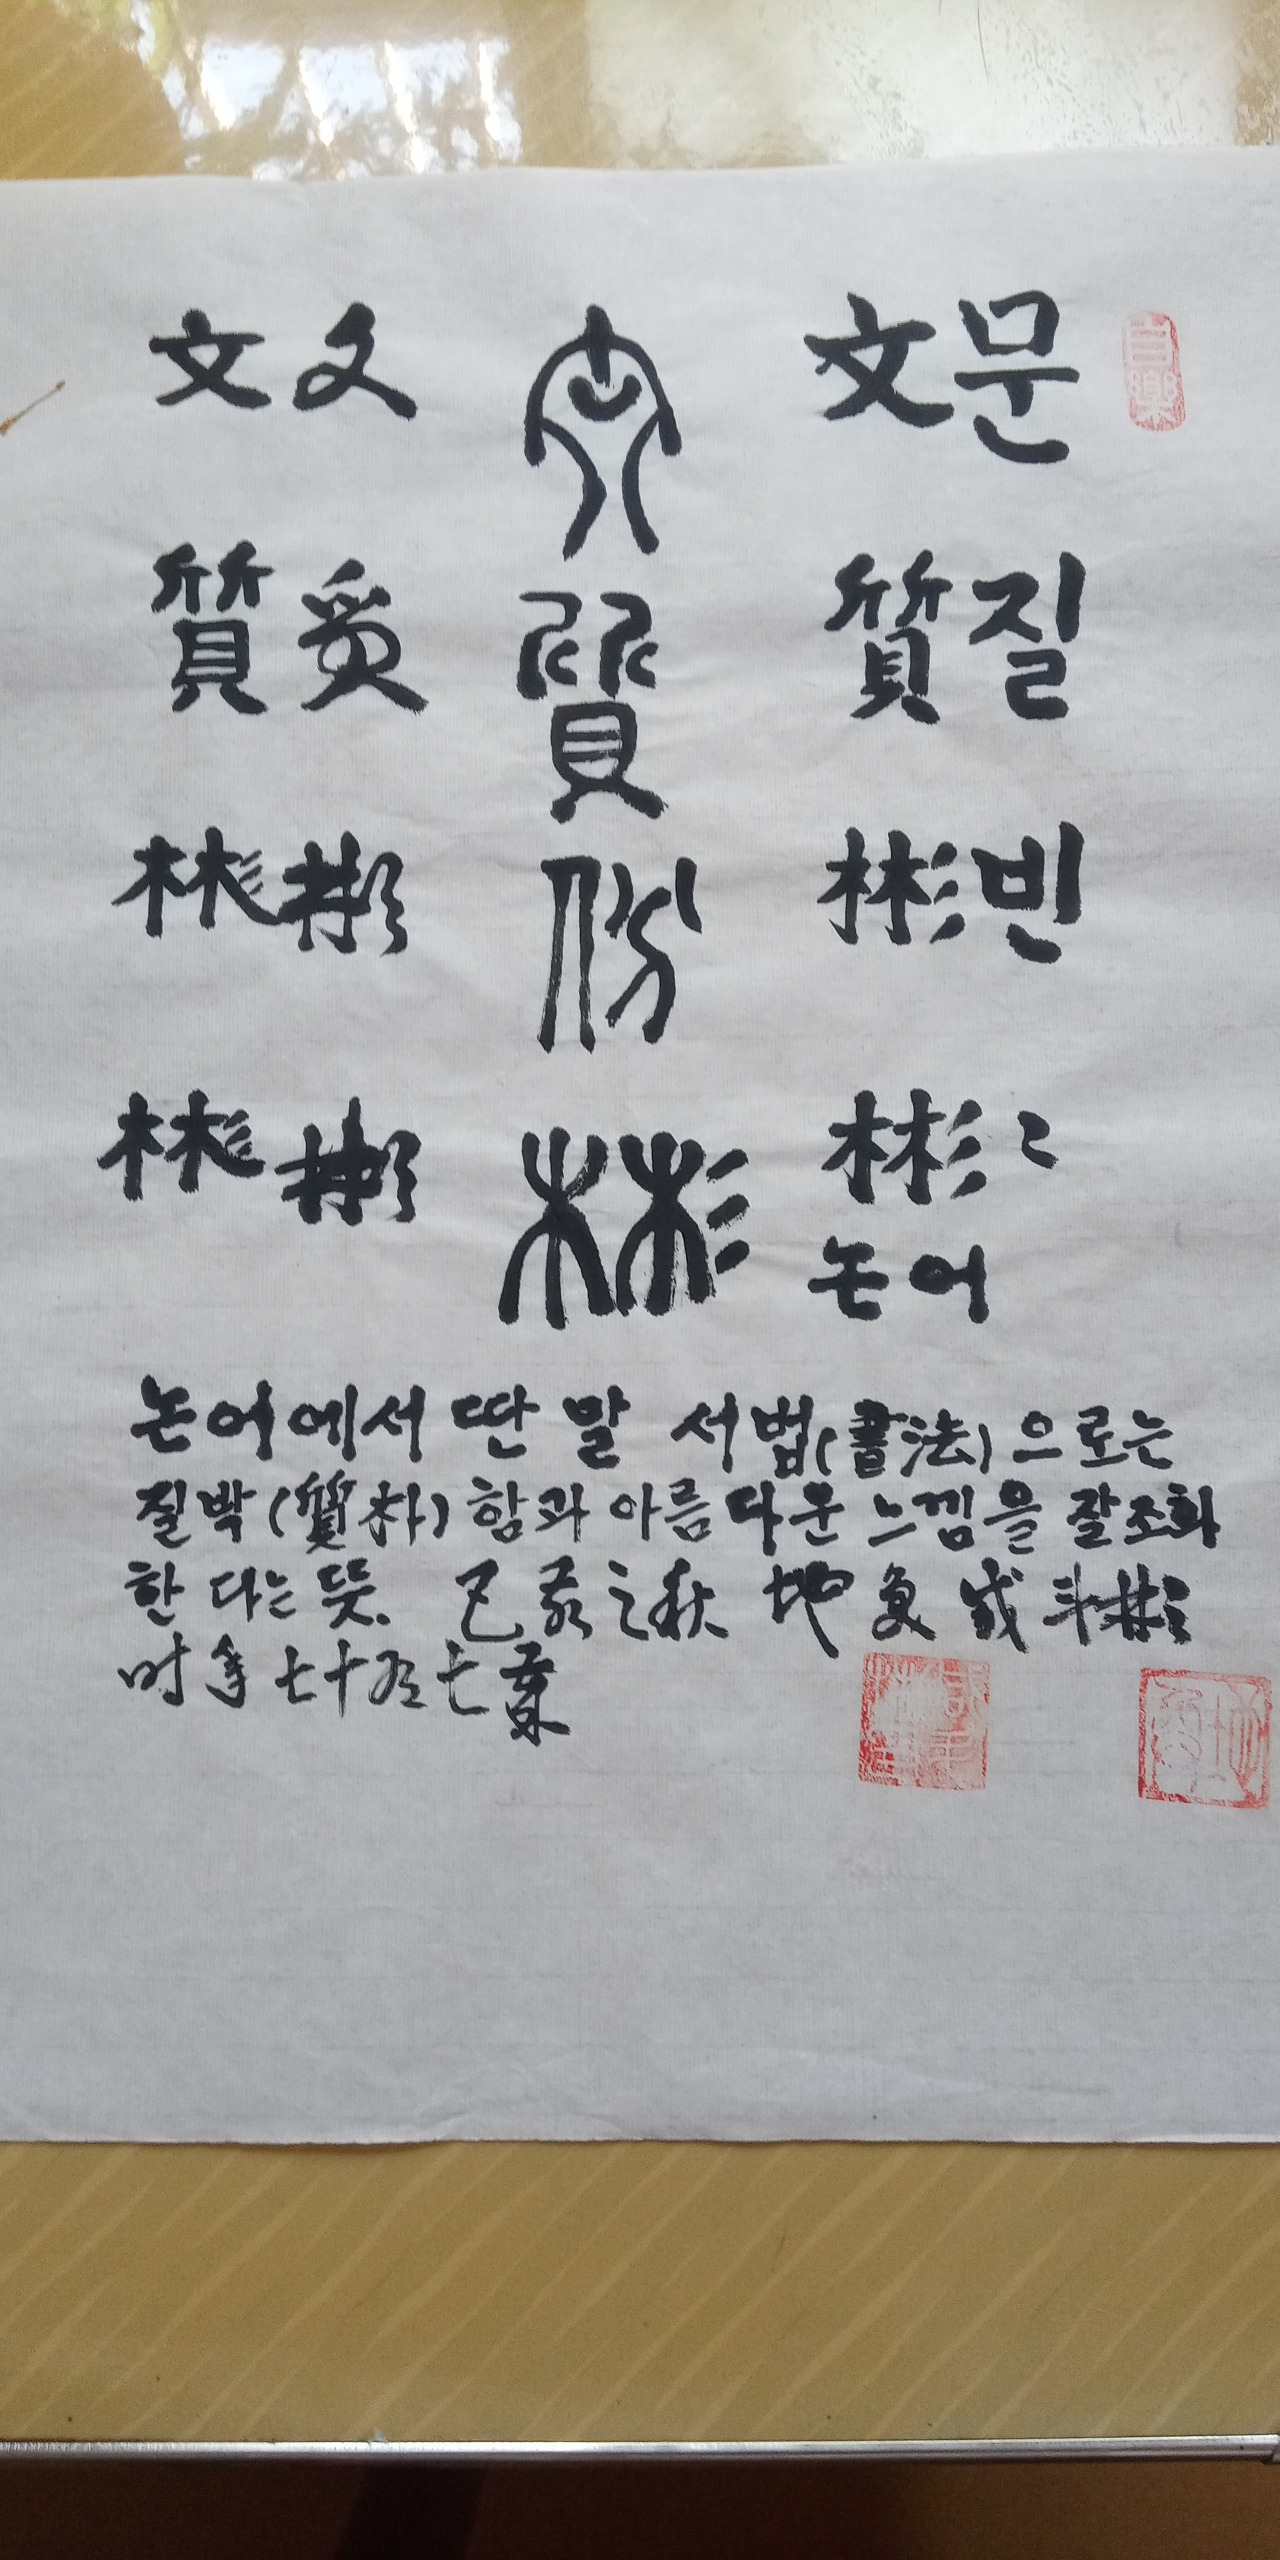 文 문
質 질
彬 빈
彬〻
논어
文
質
份
彬
文 文
質 質
彬 彬
彬 彬
논어에서 딴 말 서법(書法)으로는
질박(質朴)함과 아름다운 느낌을 잘조화
한 다는 뜻. 己亥之秋 地 斗彬
时年七十五 七
吉樂